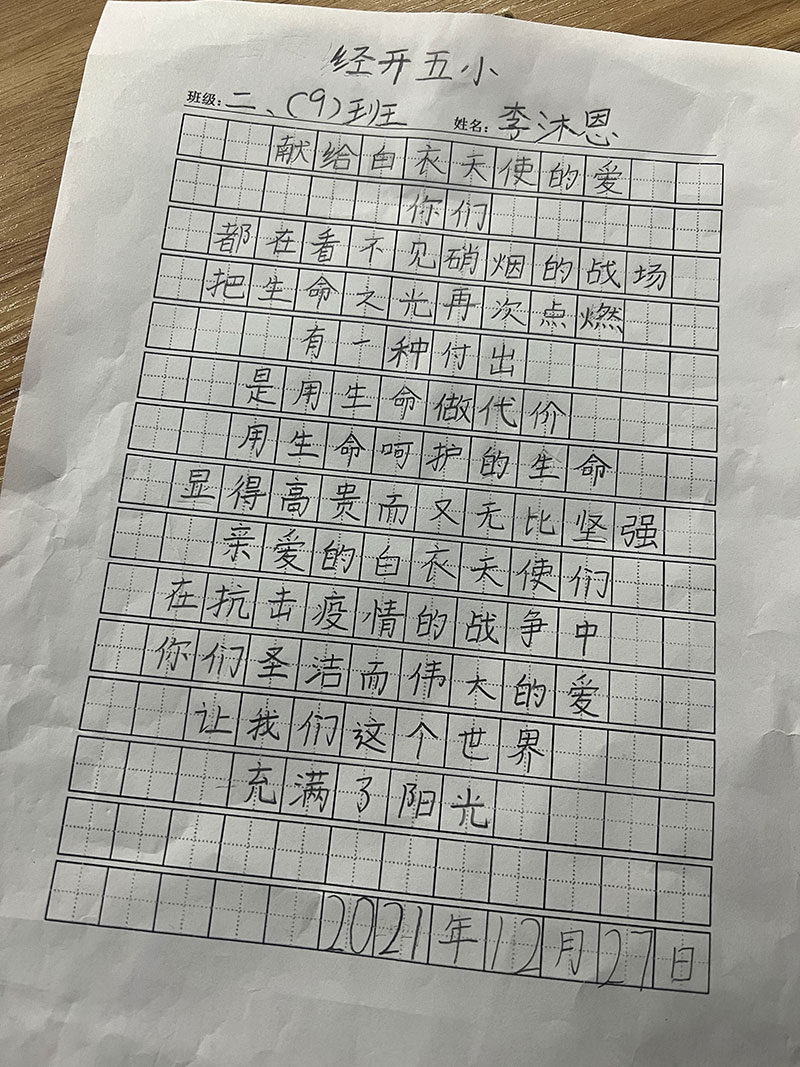 经开五小
班级:二、(9)班 姓名:李沐恩
献给白衣天使的爱
你们
都在看不见硝烟的战场
把生命之光再次点燃
有一种付出
是用生命做代价
用生命呵护的生命
显得高贵而又无比坚强
亲爱的白衣天使们
在抗击疫情的战争中
你们圣洁而伟大的爱
让我们这个世界
充满了阳光
2021年12月27日